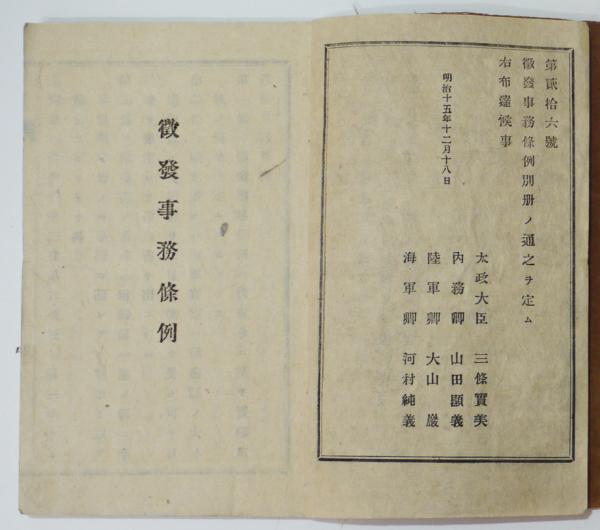 第貳拾六號
徵發事務條例別册ノ通之ヲ定ム
右布達候事
明治十五年十二月十八日
太政大臣 三條實美
內務卿 山田顯義
陸軍卿 大山巖
海軍卿 河村純義
徵發事務條例